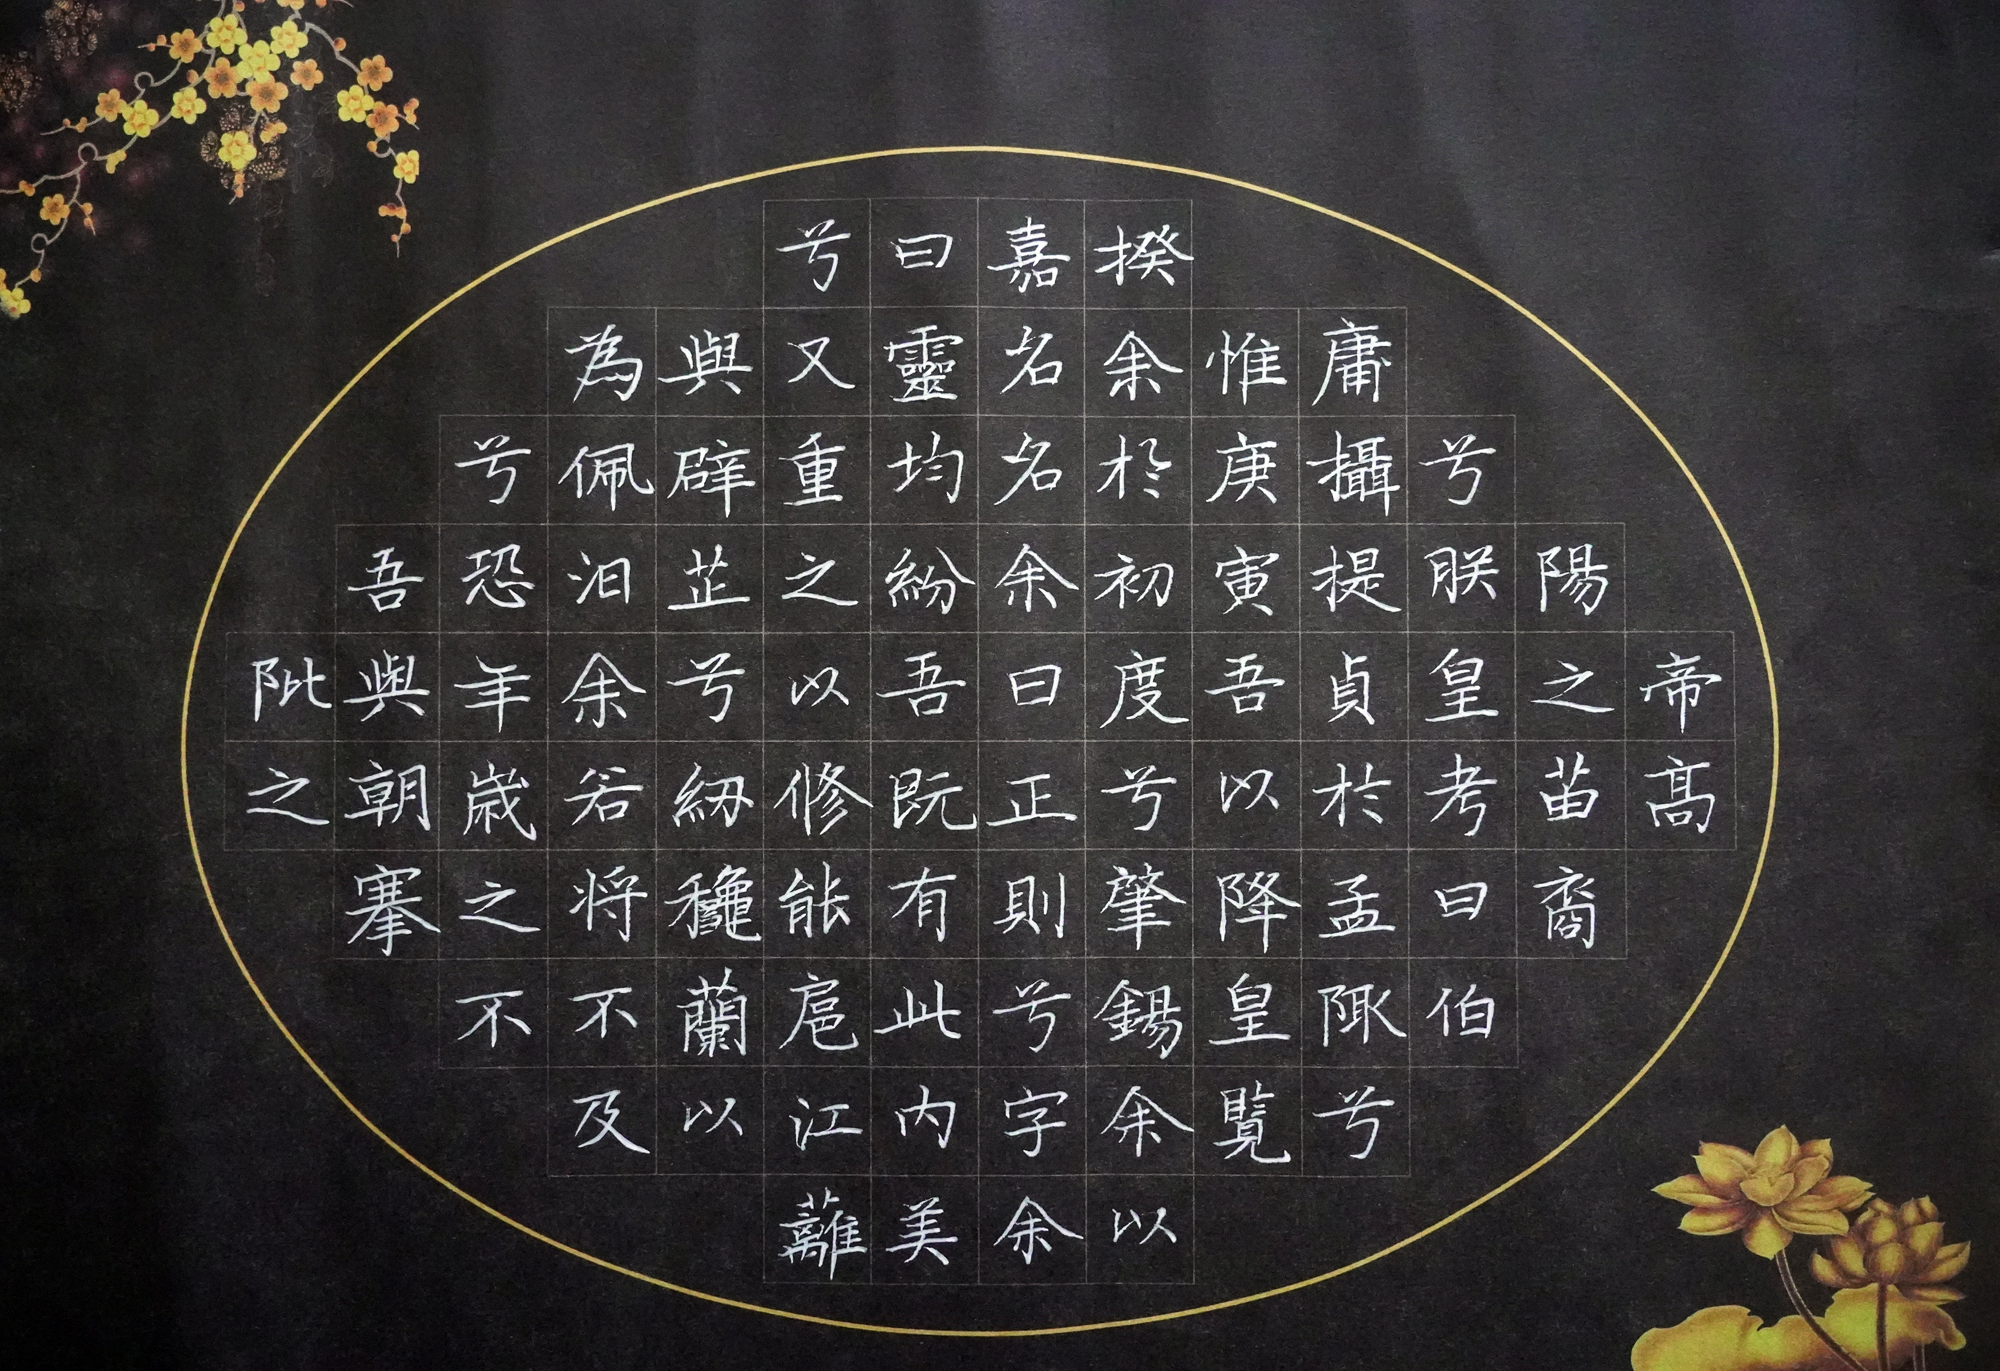 帝髙
陽之苗裔
兮朕皇考曰伯
庸攝提貞於孟陬兮
惟庚寅吾以降皇覽
揆余於初度兮肇錫余以
嘉名名余曰正則兮字余
曰靈均紛吾既有此内美
兮又重之以修能扈江蘺
與辟芷兮紉穐蘭以
為佩汩余若将不及
兮恐年歲之不
吾與朝搴
阰之